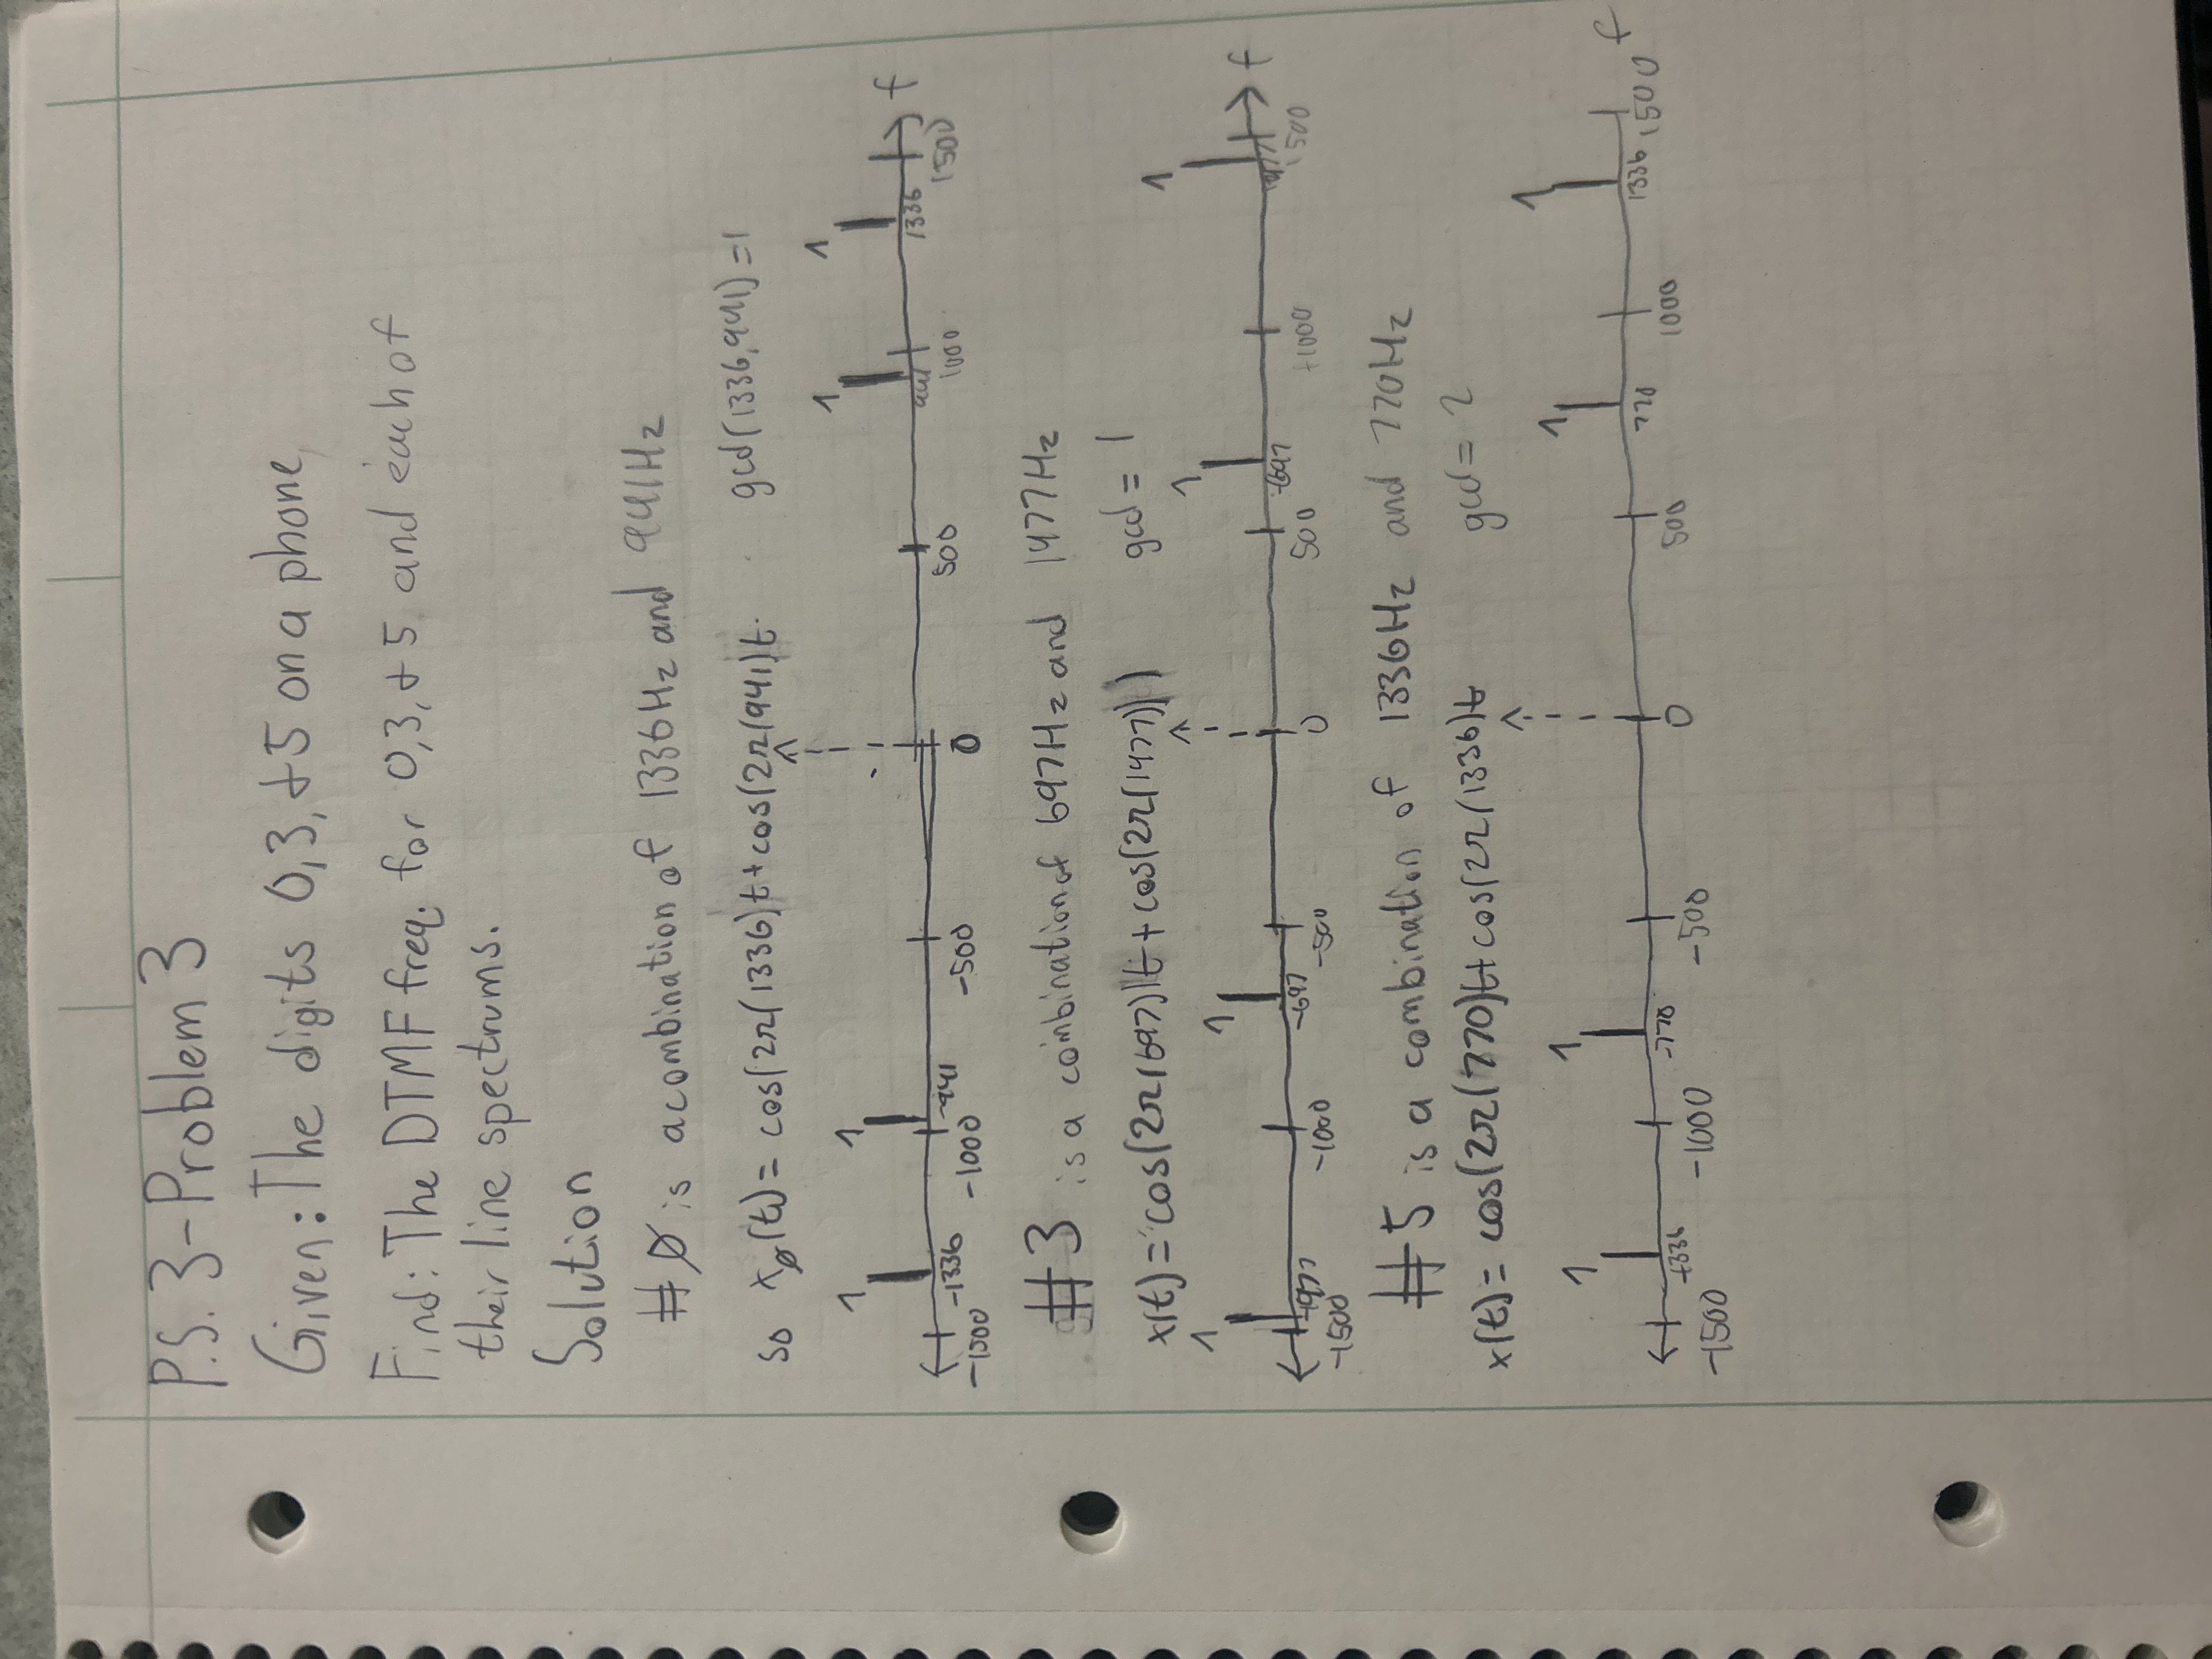 P.S. 3-Problem 3
Given: The digits 0,3,+5 on a phone,
Find: The DTMF freq. for 0,3,+5 and each of
their line spectrums.
Solution
#Ø is a combination of 1336Hz and 941Hz
so xø(t)= cos(2π(1336)t+cos(2π(941)t. gcd(1336,941)=1
1 1 1 1
-1500 -1336 -1000 -941 -500 0 500 941 1000 1336 1500 f
#3 is a combination of 697Hz and 1477Hz
x(t)=cos(2π(697))t+cos(2π(1477)) gcd= 1
1 1 1 1
-1500 -1000 -697 -500 0 500 -697 +1000 1477 1500 f
#5 is a combination of 1336Hz and 770Hz
x(t)= cos(2π(770)t+cos(2π(1336)t gcd= 2
1 1 1 1
-1500 -1336 -1000 -770 -500 0 500 770 1000 1336 1500 f